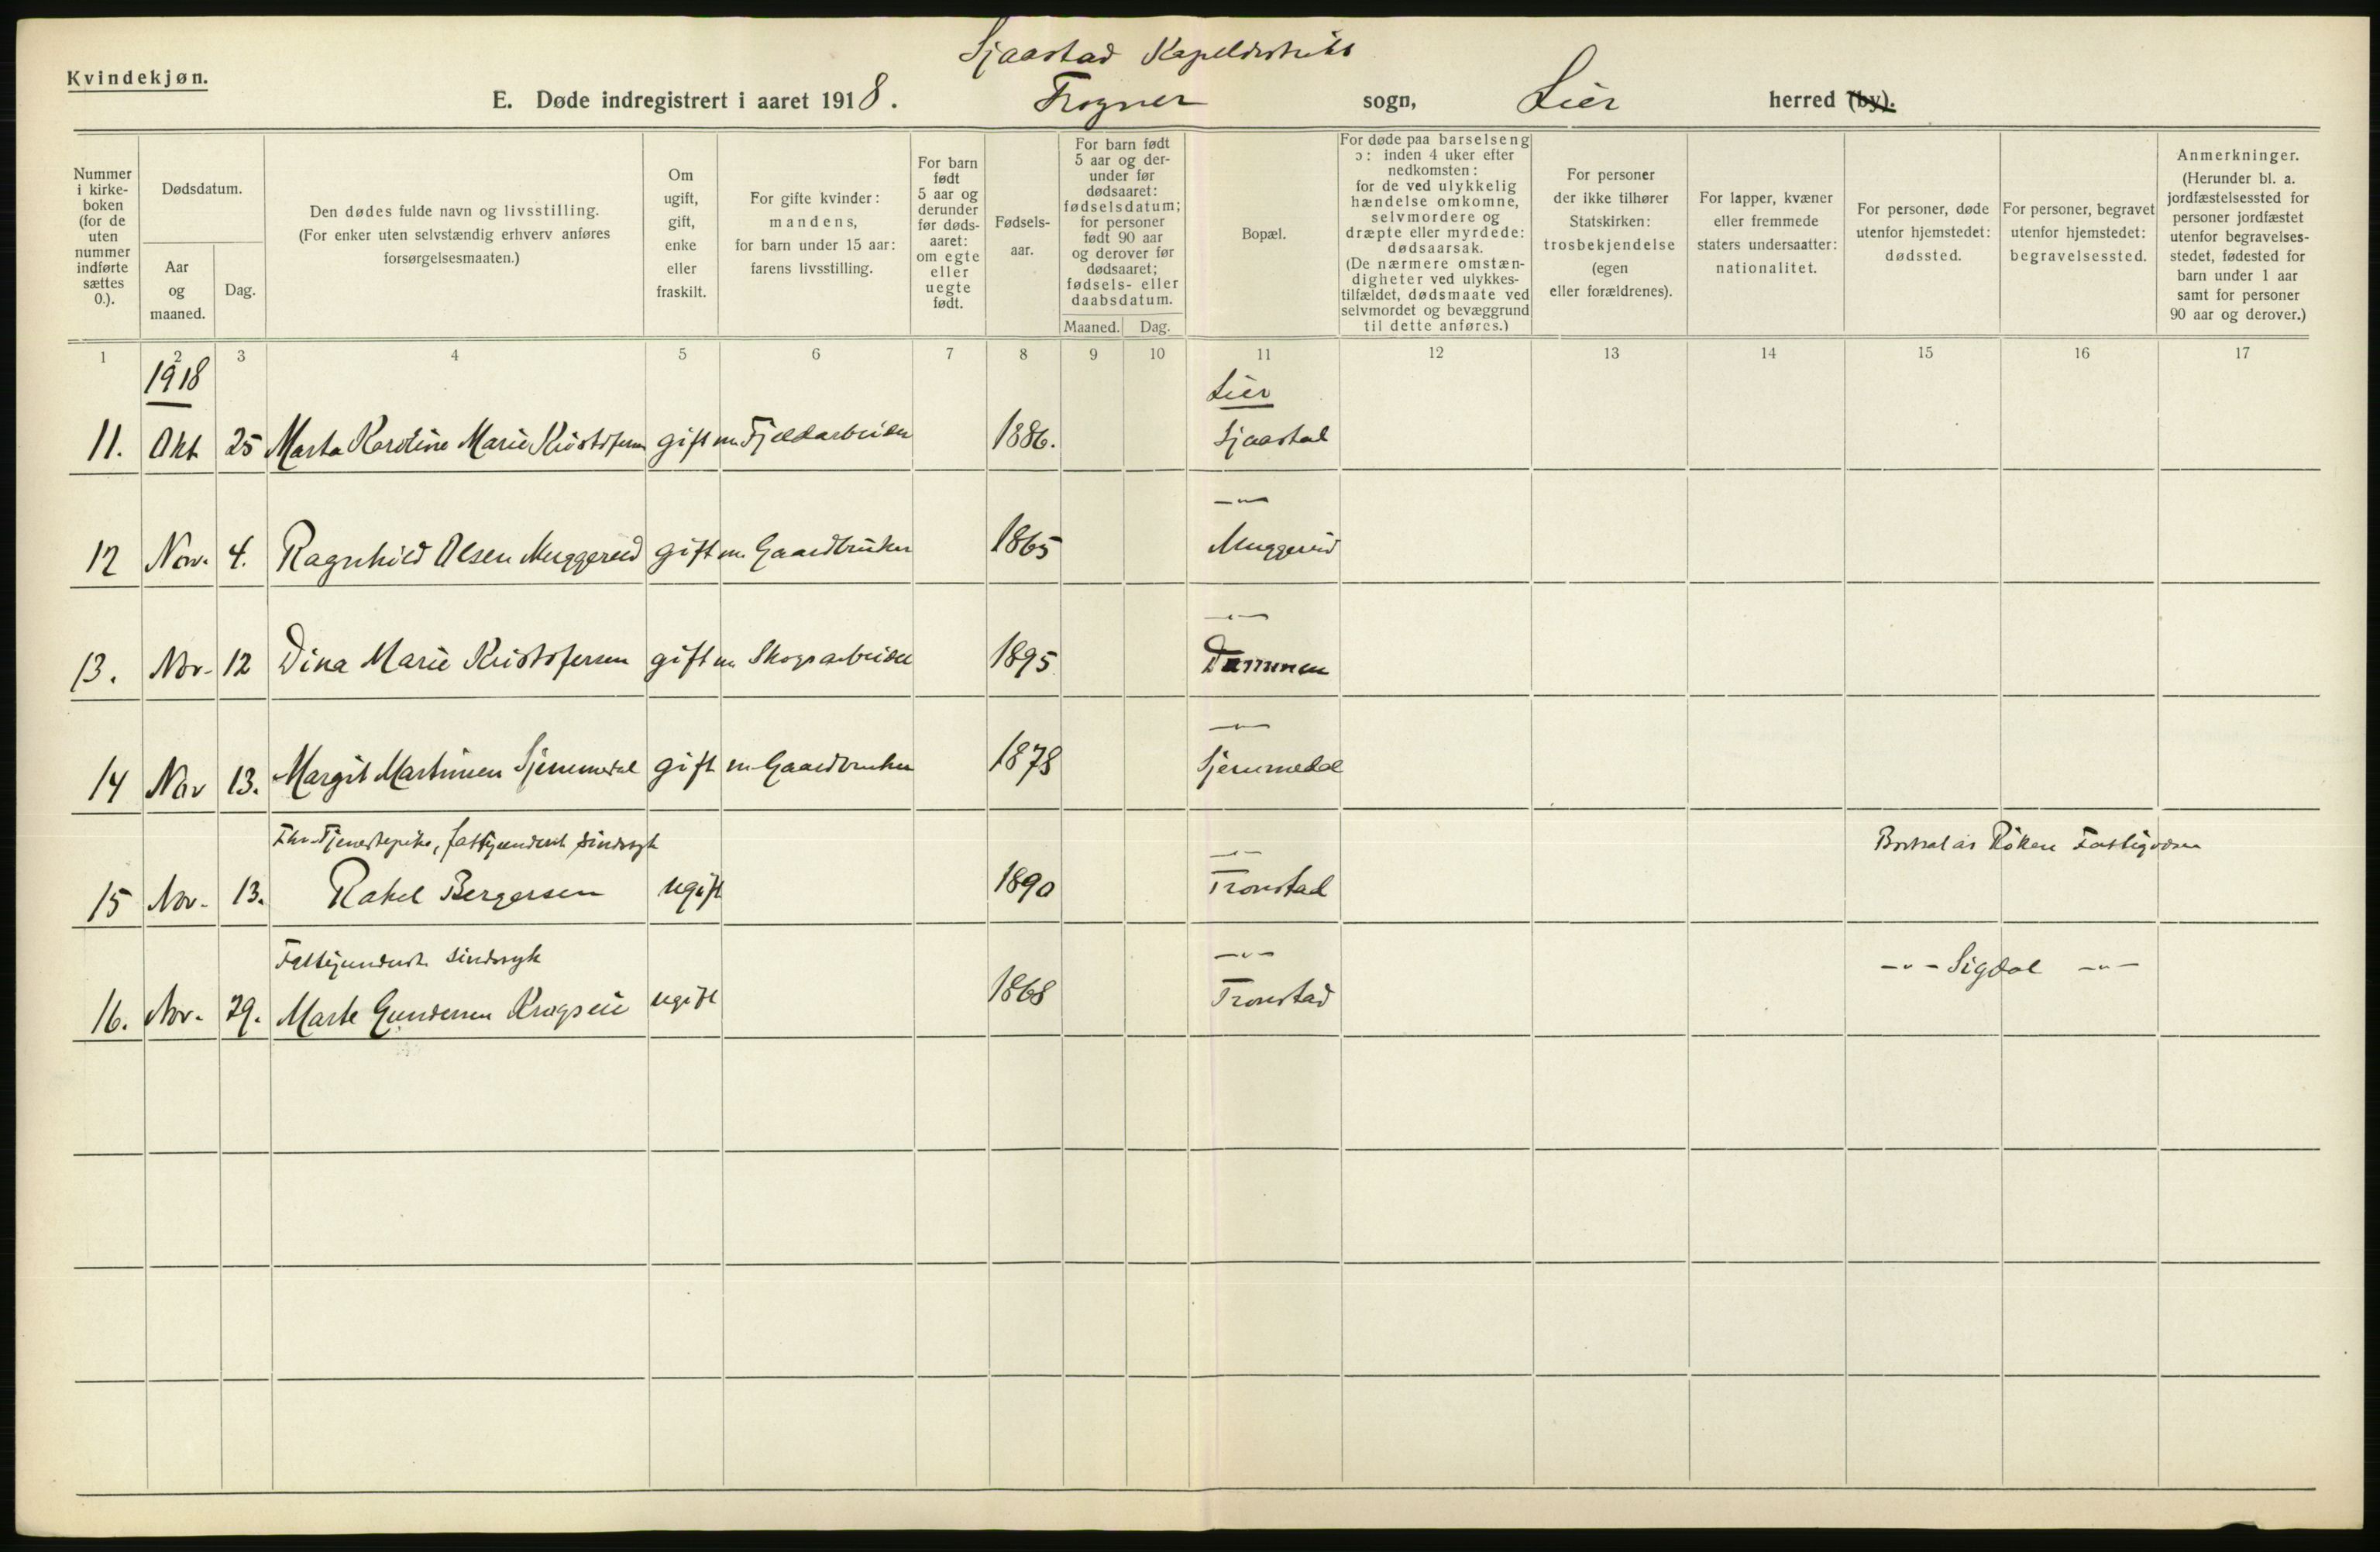 Kvindekjøn.
Sjaastad Kapeldistrikt
E. Døde indregistrert i aaret 1918. Frogner sogn, Lier herred (by).
Nummer i kirkeboken (for de uten nummer indførte sættes 0.).
Dødsdatum.
Aar og maaned.
Dag.
Den dødes fulde navn og livsstilling. (For enker uten selvstændig erhverv anføres forsørgelsesmaaten.)
Om ugift, gift, enke eller fraskilt.
For gifte kvinder: mandens, for barn under 15 aar: farens livsstilling.
For barn født 5 aar og derunder før dødsaaret: om egte eller uegte født.
Fødselsaar.
For barn født 5 aar og derunder før dødsaaret: fødselsdatum; for personer født 90 aar og derover før dødsaaret; fødsels- eller daabsdatum.
Maaned. Dag.
Bopæl.
For døde paa barselseng ɔ: inden 4 uker efter nedkomsten: for de ved ulykkelig hændelse omkomne, selvmordere og dræpte eller myrdede: dødsaarsak. (De nærmere omstændigheter ved ulykkestilfældet, dødsmaate ved selvmordet og bevæggrund til dette anføres.)
For personer der ikke tilhører Statskirken: trosbekjendelse (egen eller forældrenes).
For lapper, kvæner eller fremmede staters undersaatter: nationalitet.
For personer, døde utenfor hjemstedet: dødssted.
For personer, begravet utenfor hjemstedet: begravelsessted.
Anmerkninger. (Herunder bl. a. jordfæstelsessted for personer jordfæstet utenfor begravelsesstedet, fødested for barn under 1 aar samt for personer 90 aar og derover.)
1 2 3 4 5 6 7 8 9 10 11 12 13 14 15 16 17
1918 Lier
11. Okt 25 Marta Karoline Marie Kristofersen gift m Fjeldarbeider 1886. Sjaastad
— " —
12 Nov. 4. Ragnhild Olsen Muggerud gift m Gaardbruker 1865 Muggerud
— " —
13. Nov. 12 Dina Marie Kristofersen gift m Skogsarbeider 1895 Dammen
— " —
14 Nov 13. Margit Martinsen Sjerumedal gift m Gaardbruker 1878 Sjerumedal
Tjenestepike, fattigunderst. sindssyk — " — Røken Fattigvæsen
15 Nov. 13. Rakel Bergersen ugift 1890 Tronstad
Fattigunderst. sindssyk — " — — " — Sigdal — " —
16. Nov. 29. Marte Gundersen ugift 1868 Tronstad